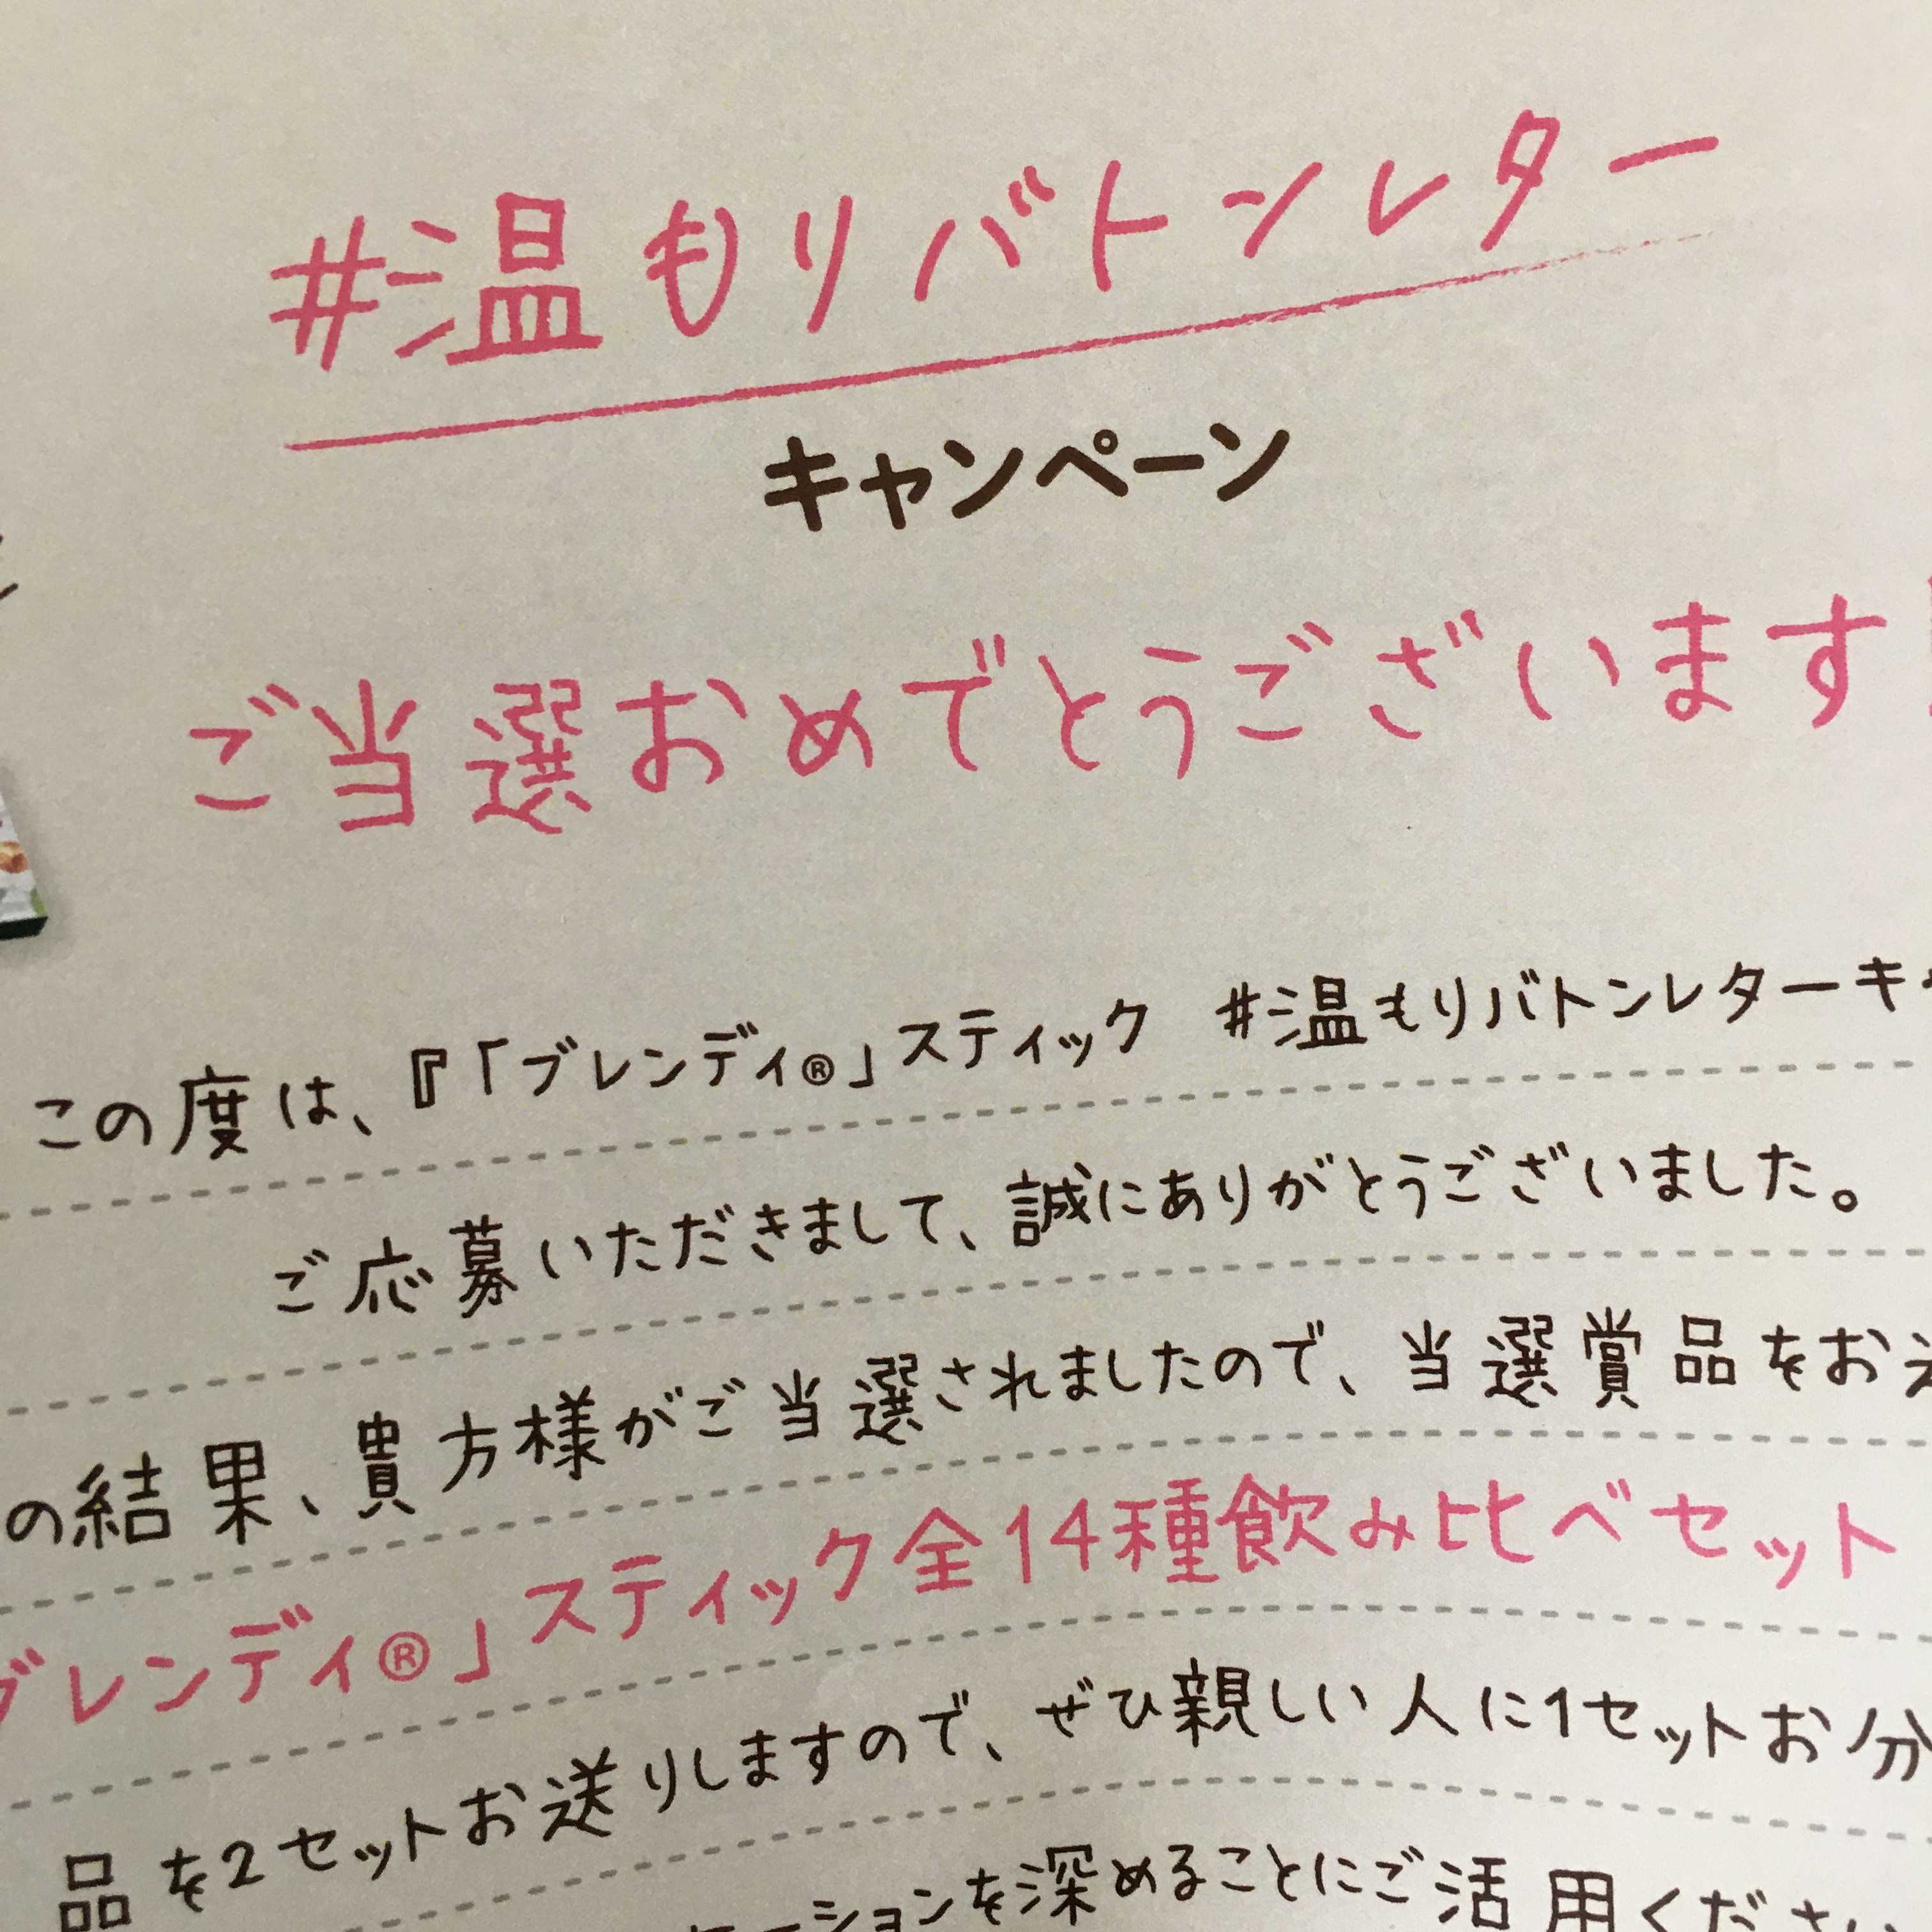 #温もりバトンレター
キャンペーン
ご当選おめでとうございます
この度は、『「ブレンディ®」スティック #温もりバトンレターキ
ご応募いただきまして、誠にありがとうございました。
の結果、貴方様がご当選されましたので、当選賞品をお
ブレンディ®」スティック全14種飲み比べセット
品を2セットお送りしますので、ぜひ親しい人に1セットお分
ーションを深めることにご活用くださ